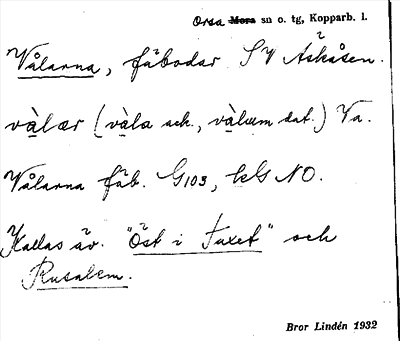 Orsa Mora sn o. tg, Kopparb. l.
Vålarna, fäbodar SV Åskåsen.
vàlær (vàla ack., vàlum dat.) Va.
Vålarna fäb. G103, kls NO.
Kallas äv. "Öst i Tuxet" och
Rusalem.
Bror Lindén 1932